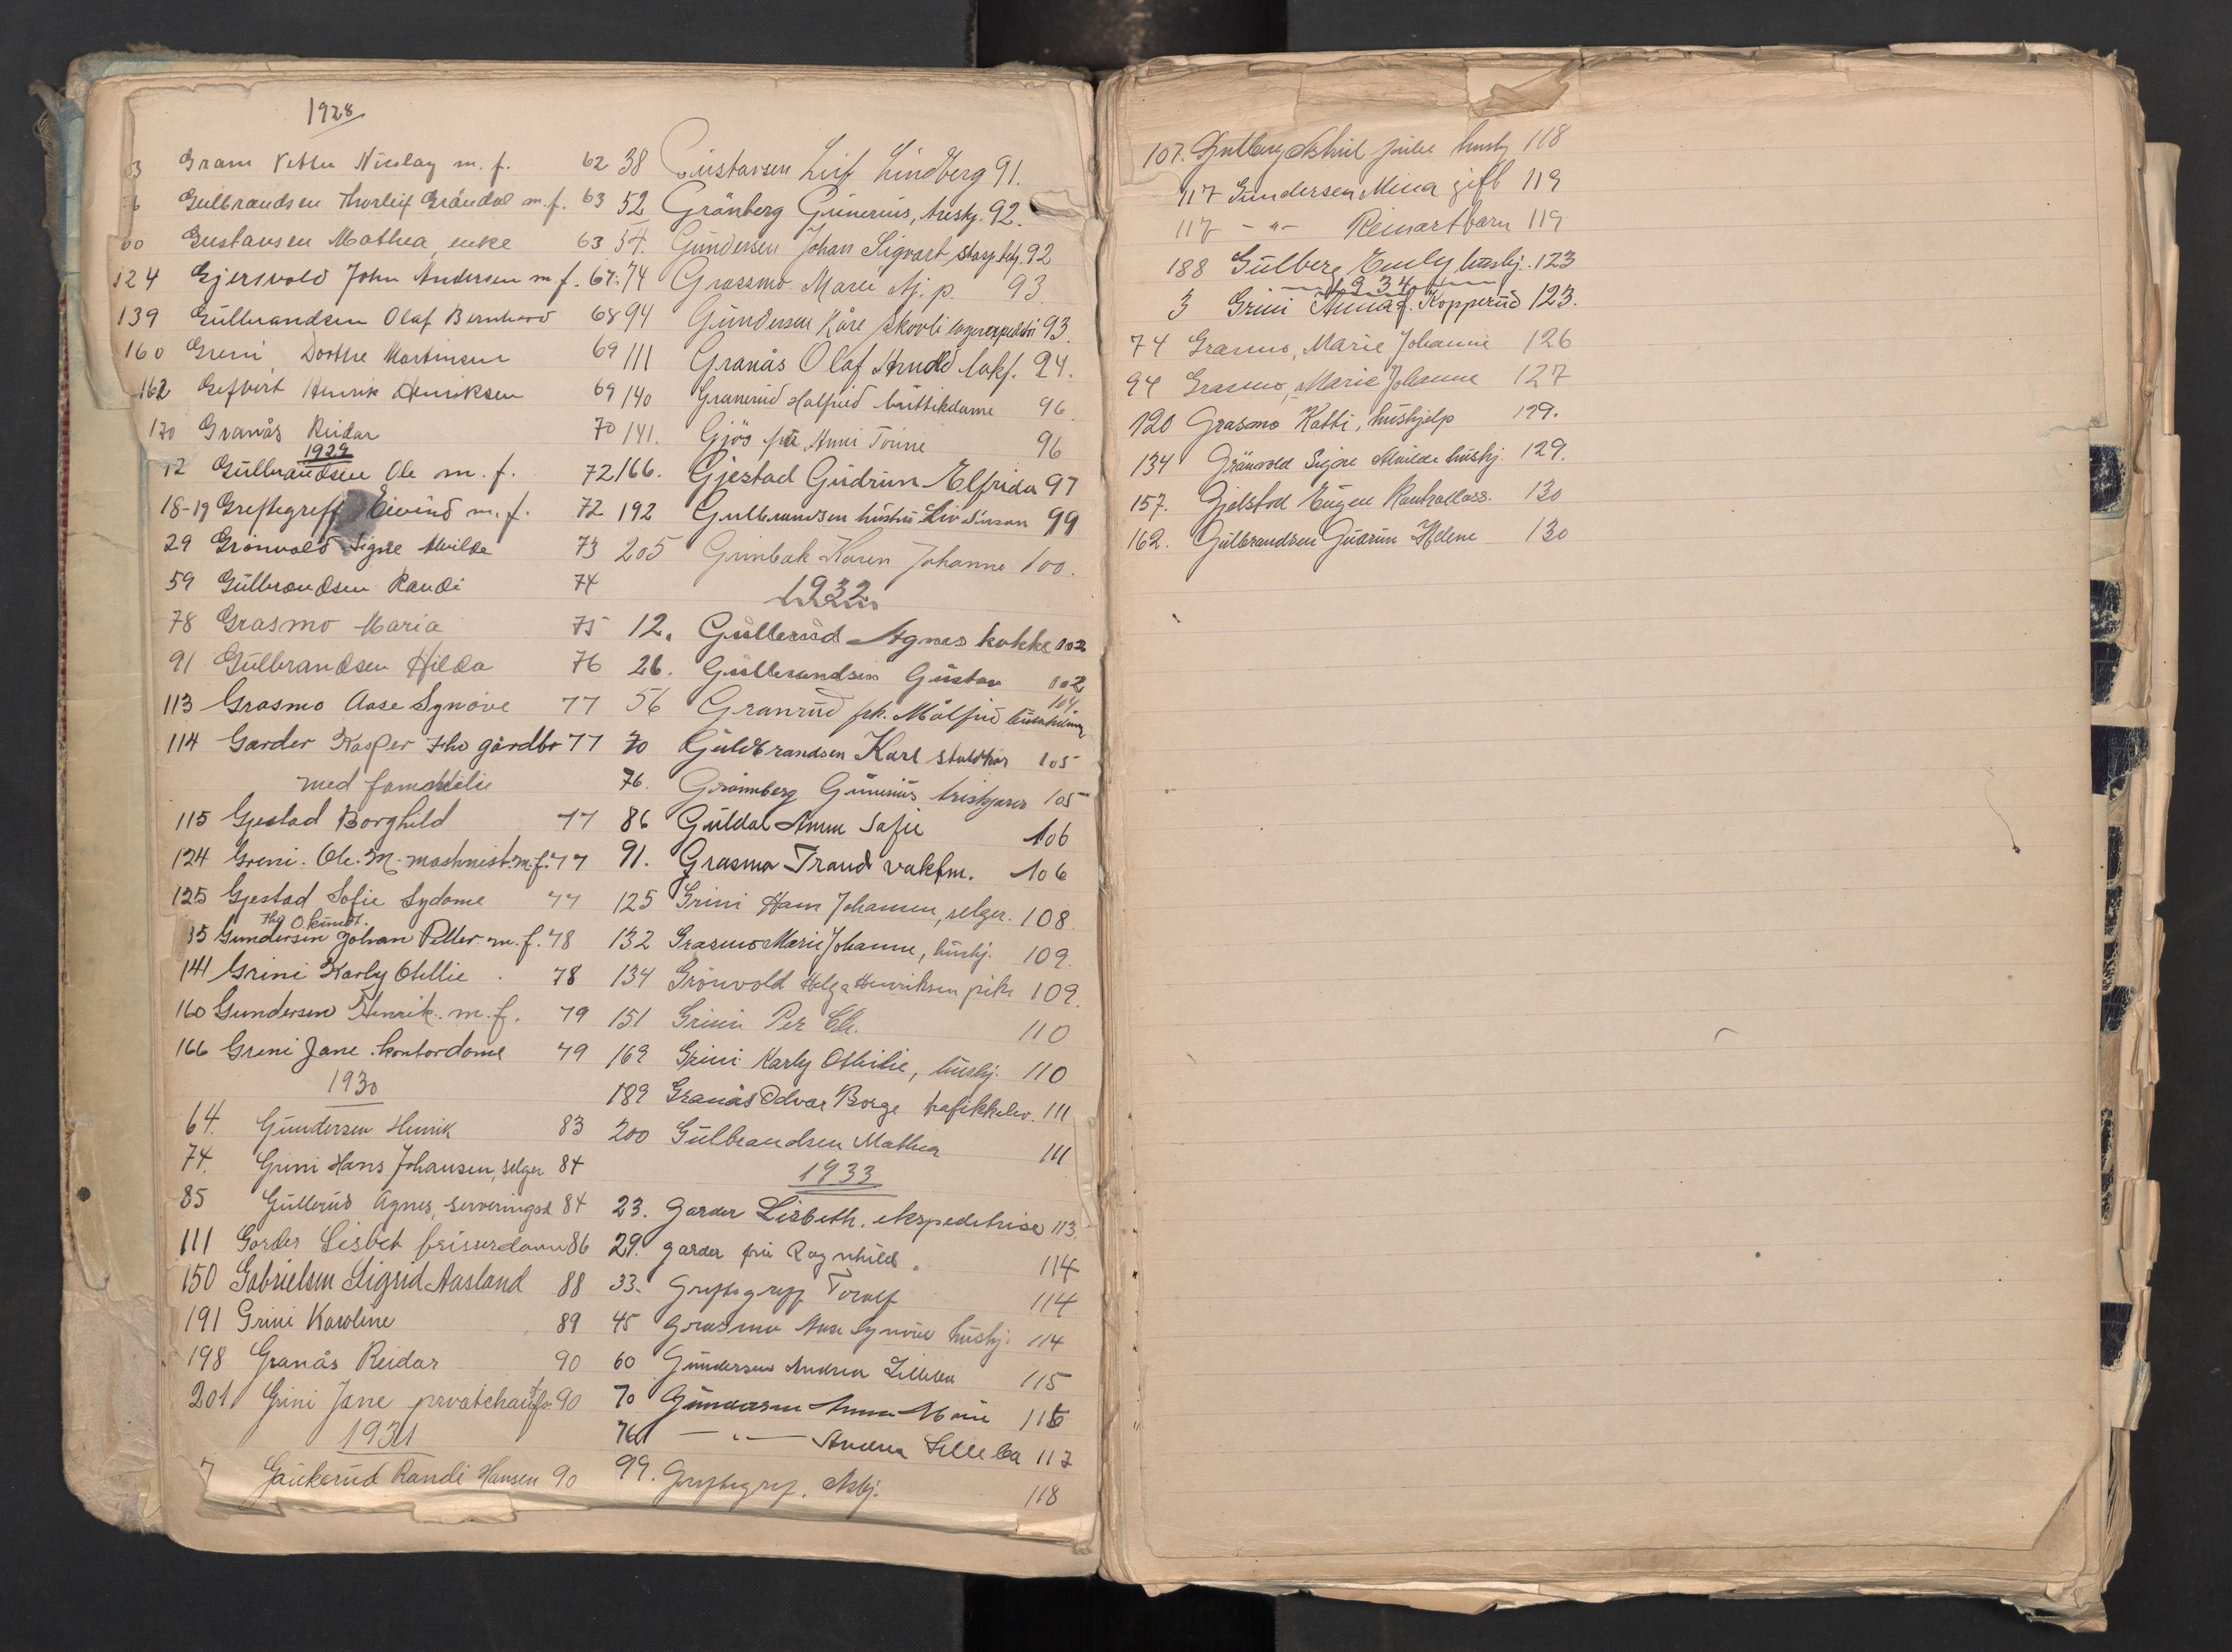 1928
3 Gram Petter Nicolay m. f. 62
6 Gulbrandsen Thorleif Gröndal m. f. 63
60 Gustavsen Mathea, enke 63
124 Gjersvold John Andersen m. f. 67.
139 Gulbrandsen Olaf Bernhard 68
160 Greni Dorthe Martinsen 69
162 Henrik Henriksen 69
170 Granås Reidar 70
1929
12 Gulbrandsen Ole m. f. 72
18-19 Greftegreff Eivind m. f. 72
29 Grönvold Signe Milde 73
59 Gulbrandsen Randi 74
78 Grasmo Maria 75
91 Gulbrandsen Hilda 76
113 Grasmo Aase Synöve 77
114 Garder Kasper gårdbr 77
med familie
115 Gjestad Borghild 77
124 Greni. Ole. M. mashnist. m. f. 77
125 Gjestad Sofie Sydame 77
35 Gundersen Johan Petter m. f. 78
141 Grini Karly Otellie 78
160 Gundersen Henrik. m. f. 79
166 Greni Jane. kontordame 79
1930
64. Gundersen Henrik 83
74. Grini Hans Johansen, selger 84
85 Gullerud Agnes, serveringsd. 84
111 Garder Lisbet friserdame 86
150 Gabrielsen Sigrid Aasland 88
191 Grini Karoline 89
198 Granås Reidar 90
201 Grini Jane privatchauffør 90
1931
7 Gaukerud Randi Hansen 90
38 Gustavsen Leif Lindberg 91.
52 Grönberg Gunerius, trishj. 92.
54. Gundersen Johan Sigvart 92
74 Grassmo Marie Aj. p. 93
94 Gundersen Kåre Skovli lagerexpeditør 93
111 Granås Olaf Arnold lokf. 94.
140 Granerud Halfrid butikdame 96
141. Gjös fru Anni Tonne 96
166. Gjestad Gudrun Elfrida 97
192 Gulbrandsen hustru Liv Synnøve 99
205 Grinbak Karen Johanne 100.
1932
12. Gullerud Agnes kokke 102
26. Gulbrandsen Gustav 102
56 Granrud frk. Målfrid 104
70 Guldbrandsen Karl stuldkar 105
76. Grönnberg Gunerius triskjærer 105
86 Guldal Anne Sofie 106
91. Grasmo Trond vaktm. 106
125 Grini Hans Johansen, selger. 108
132 Grasmo Marie Johanne, hushj. 109.
134 Grönvold Helga Henriksen pike 109.
151 Grini Per Chr. 110
169 Grini Karly Othilie, hushj. 110
189 Granås Odvar Borge trafikkelev. 111
200 Gulbrandsen Mathea 111
1933
23. Garder Lisbeth. ekspeditrise 113.
29. Garder fru Ragnhild. 114
33. Greftegreff Torolf 114
45 Grasmo Aase Synöve hushj. 114
60 Gundersen Andrea Lilleba 115
70 Gundersen Anna Marie 116
76 — " — Andrea Lilleba 117
99. Greftegref. Asbj. 118
107. Gutberg Astrid Julie hushj 118
117 Gundersen Mina gift 119
117 - " - Reinart barn 119
188 Gulberg Emely hushj. 123
1934
3 Grini Anna f. Kopperud 123.
74 Grasmo, Marie Johanne 126
94 Grasmo, Marie Johanne 127
120 Grasmo Katti, hushjelp 129.
134 Grönvold Signe Milde hushj. 129.
157. Gjelstad Eugen Kontrollass. 130
162. Gulbrandsen Gudrun Helene 130